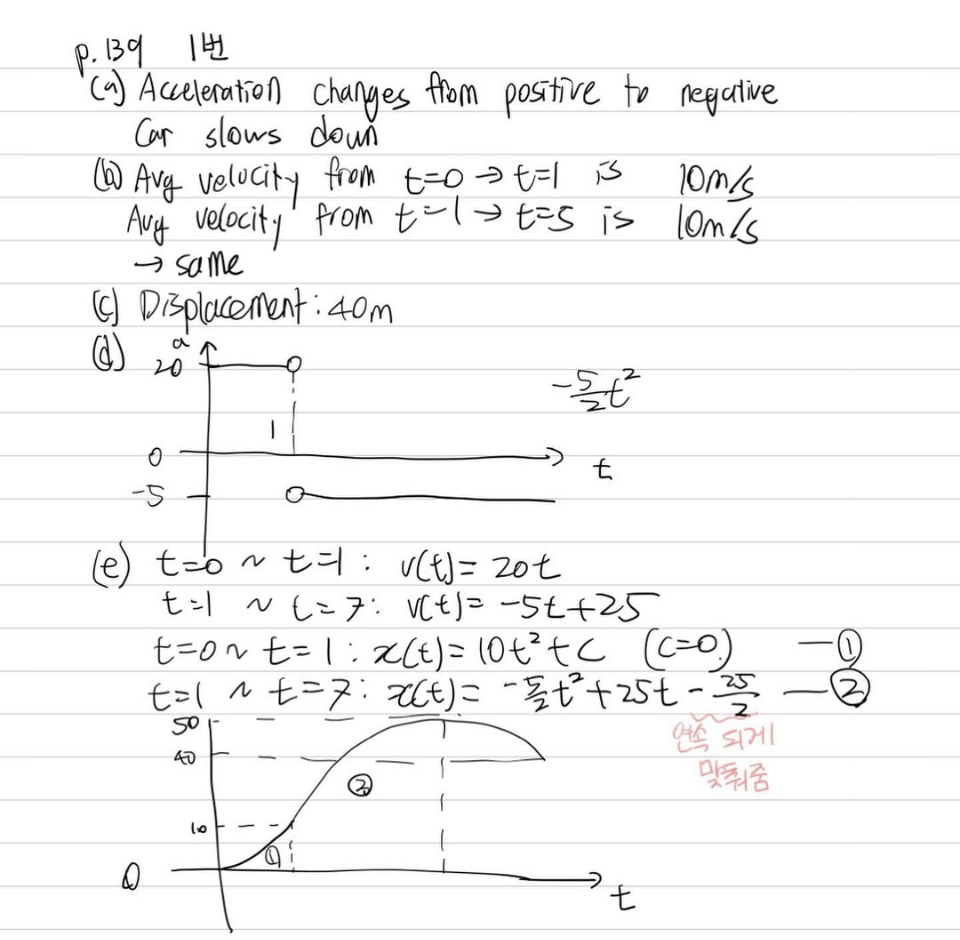 p.139 1번
(a) Acceleration changes from positive to negative
Car slows down
(b) Avg velocity from t=0 → t=1 is 10m/s
Avg velocity from t=1 → t=5 is 10m/s
→ same
(c) Displacement: 40m
(d) a
20
-5/2 t²
1
0
t
-5
(e) t=0 ~ t=1 : v(t)= 20t
t=1 ~ t=7: v(t)= -5t+25
t=0 ~ t=1 : x(t)= 10t²+c (c=0) —①
t=1 ~ t=7: x(t)= -5/2 t²+25t - 25/2 —②
연속 되게
맞춰줌
50
40
②
10
①
0
t